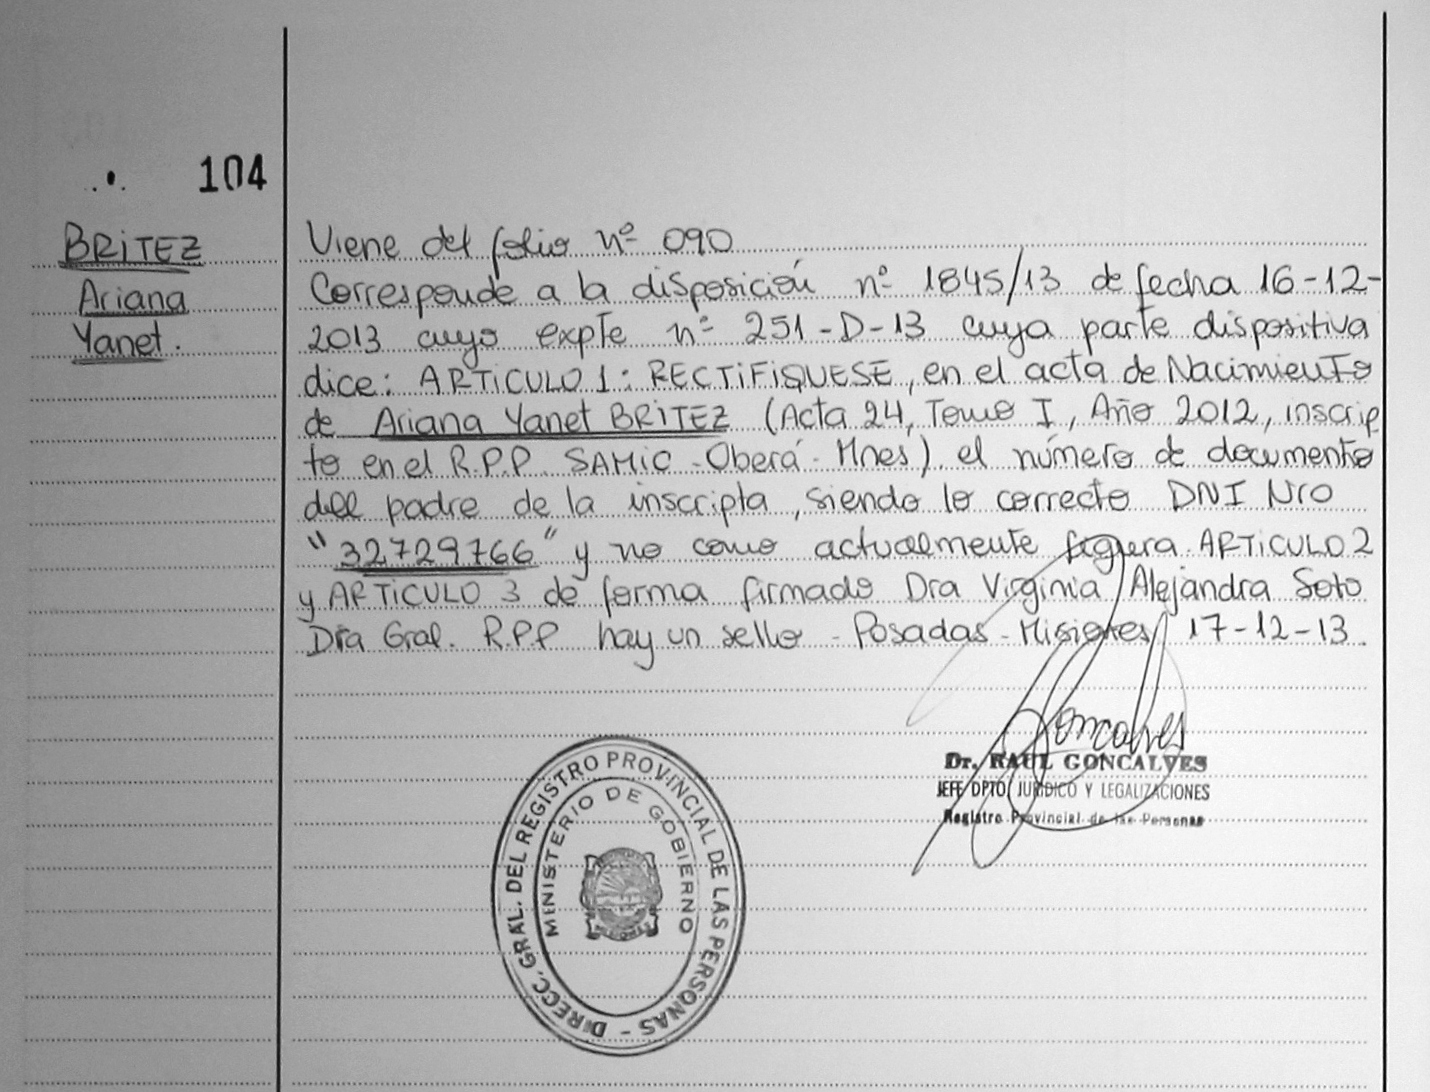 104
BRITEZ
Ariana
Yanet.
Viene del folio nº 090
Corresponde a la disposición nº 1845/13 de fecha 16-12-
2013 cuyo expte nº 251-D-13 cuya parte dispositiva
dice: ARTICULO 1: RECTIFIQUESE, en el acta de Nacimiento
de Ariana Yanet BRITEZ (Acta 24, Tomo I, Año 2012, inscrip
to en el R.P.P. SAMIC - Oberá - Mnes) el número de documento
del padre de la inscripta, siendo lo correcto DNI Nro
"32729766" y no como actualmente figura. ARTICULO 2
y ARTICULO 3 de forma firmado Dra Virginia Alejandra Soto
Dra Gral. R.P.P hay un sello - Posadas - Misiones 17-12-13.
Goncalves
Dr. RAUL GONCALVES
JEFE DPTO JURIDICO Y LEGALIZACIONES
Registro Provincial de las Personas
DIRECC. GRAL. DEL REGISTRO PROVINCIAL DE LAS PERSONAS -
MINISTERIO DE GOBIERNO